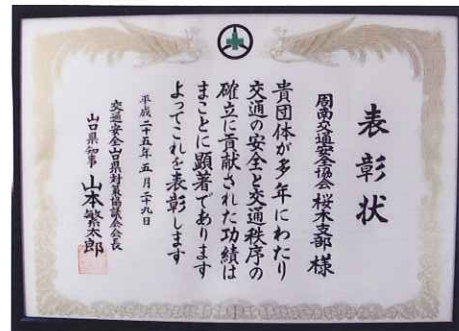 表彰状
周南交通安全協会 桜木支部 様
貴団体が多年にわたり
交通の安全と交通秩序の
確立に貢献された功績は
まことに顕著であります
よってこれを表彰します
平成二十五年五月二十九日
交通安全山口県対策協議会会長
山口県知事 山本繁太郎